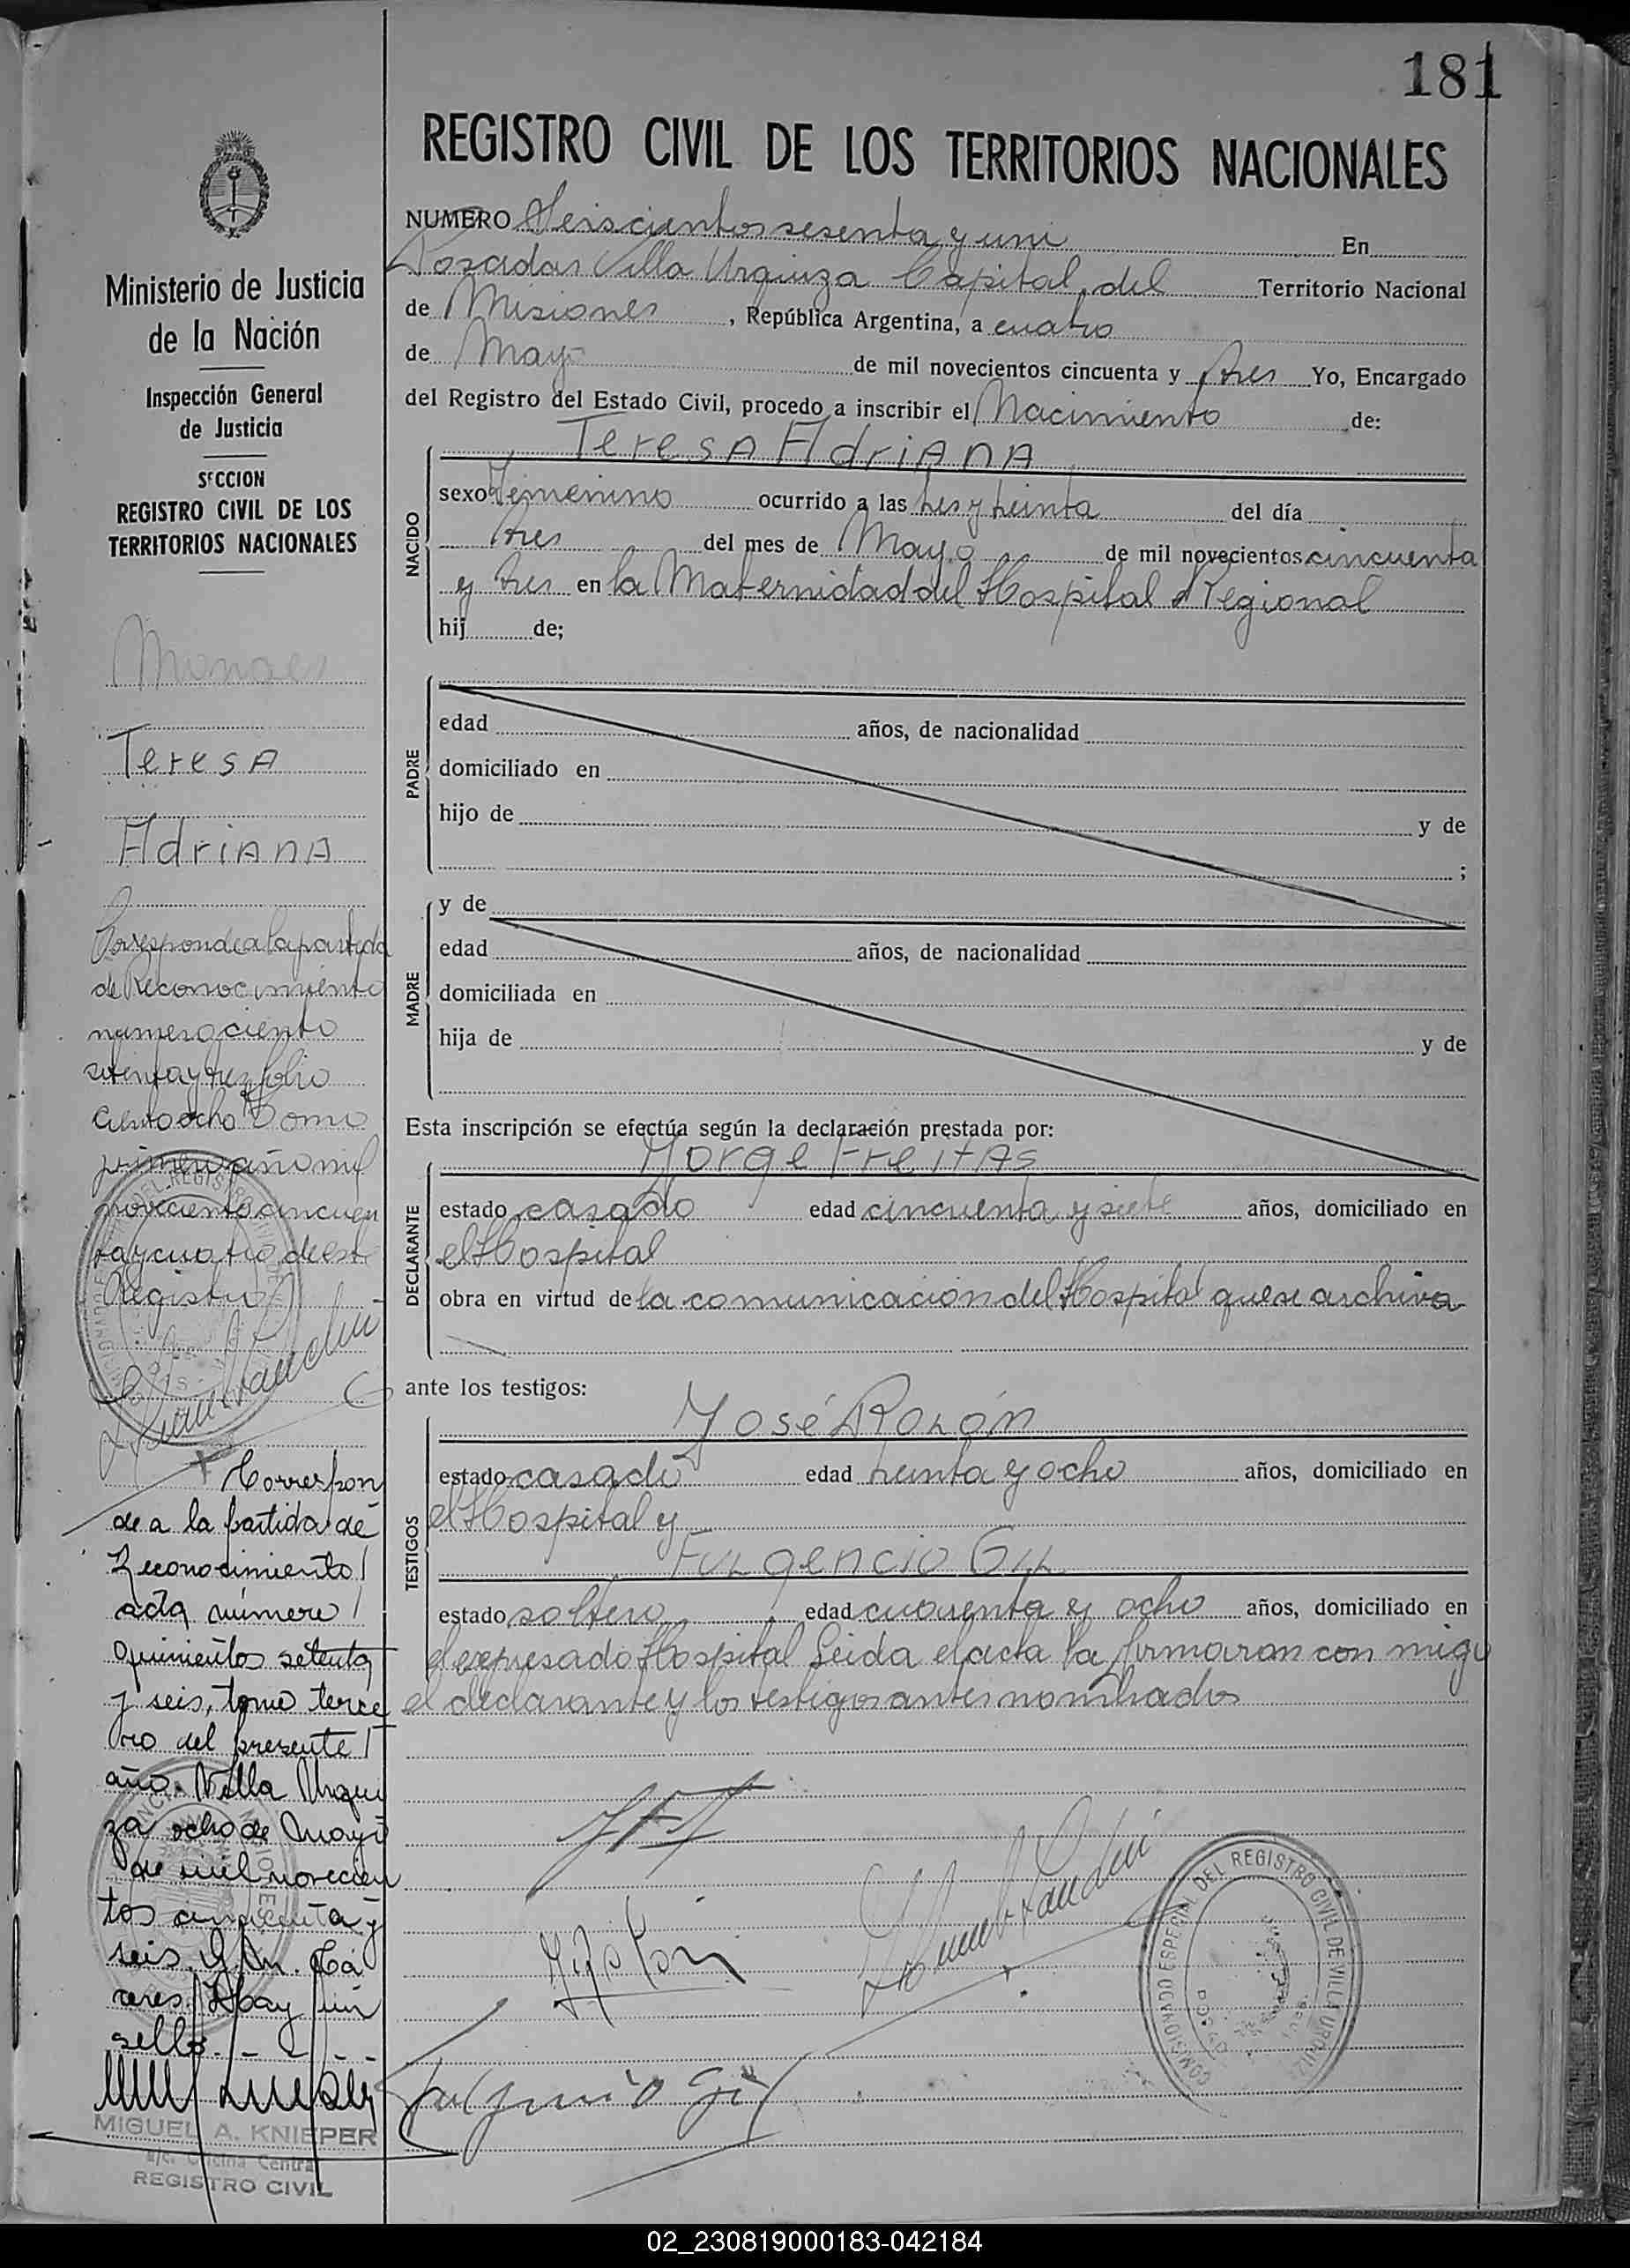 181
REGISTRO CIVIL DE LOS TERRITORIOS NACIONALES
Ministerio de Justicia
de la Nación
Inspección General
de Justicia
SECCION
REGISTRO CIVIL DE LOS
TERRITORIOS NACIONALES
Teresa
Adriana
Corresponde a la partida
de Reconocimiento
numero ciento
setenta y tres folio
ciento ocho Tomo
primero año mil
novecientos cincuen
ta y cuatro de este
Registro
Correspon
de a la partida de
reconocimiento
acta número
quinientos setenta
y seis, tomo terce
ro del presente
año. Villa Urqui
za ocho de Mayo
de mil novecien
tos cincuenta y
seis.
Hay un
sello.
MIGUEL A. KNIEPER
a/c. Oficina Central
REGISTRO CIVIL
NUMERO Seiscientos sesenta y uno En
Posadas Villa Urquiza Capital del Territorio Nacional
de Misiones, República Argentina, a cuatro
de Mayo de mil novecientos cincuenta y tres Yo, Encargado
del Registro del Estado Civil, procedo a inscribir el Nacimiento de:
NACIDO
Teresa Adriana
sexo Femenino ocurrido a las tres y treinta del día
tres del mes de Mayo de mil novecientos cincuenta
y tres en la Maternidad del Hospital Regional
hij de;
PADRE
edad años, de nacionalidad
domiciliado en
hijo de y de
;
MADRE
y de
edad años, de nacionalidad
domiciliada en
hija de y de
Esta inscripción se efectúa según la declaración prestada por:
DECLARANTE
Jorge Freitas
estado casado edad cincuenta y siete años, domiciliado en
el Hospital
obra en virtud de la comunicación del Hospital que se archiva
ante los testigos:
TESTIGOS
José Rolón
estado casado edad treinta y ocho años, domiciliado en
el Hospital y
Fulgencio Gil
estado soltero edad cuarenta y ocho años, domiciliado en
el expresado Hospital Leida el acta la firmaron con migo
el declarante y los testigos antes nombrados
J Rolon
Fulgencio Gil
COMISIONADO ESPECIAL DEL REGISTRO CIVIL DE VILLA URQUIZA
02_230819000183-042184